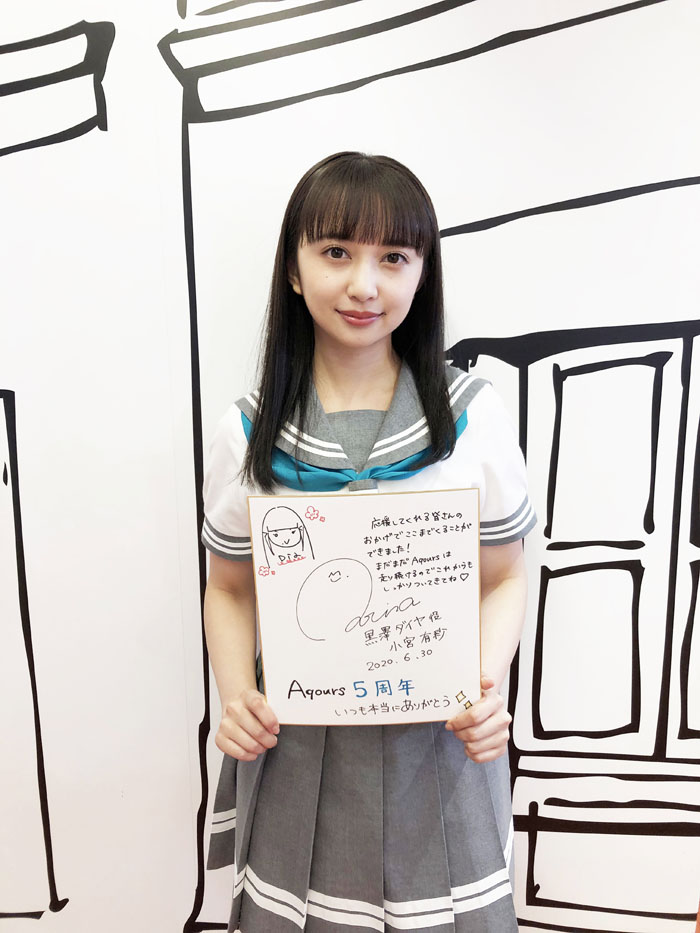 応援してくれる皆さんの
おかげでここまでくることが
できました！
まだまだAqoursは
走り続けるのでこれからも
しっかりついてきてね♡
Dia
Arisa
黒澤ダイヤ役
小宮有紗
2020.6.30
Aqours 5周年
いつも本当にありがとう